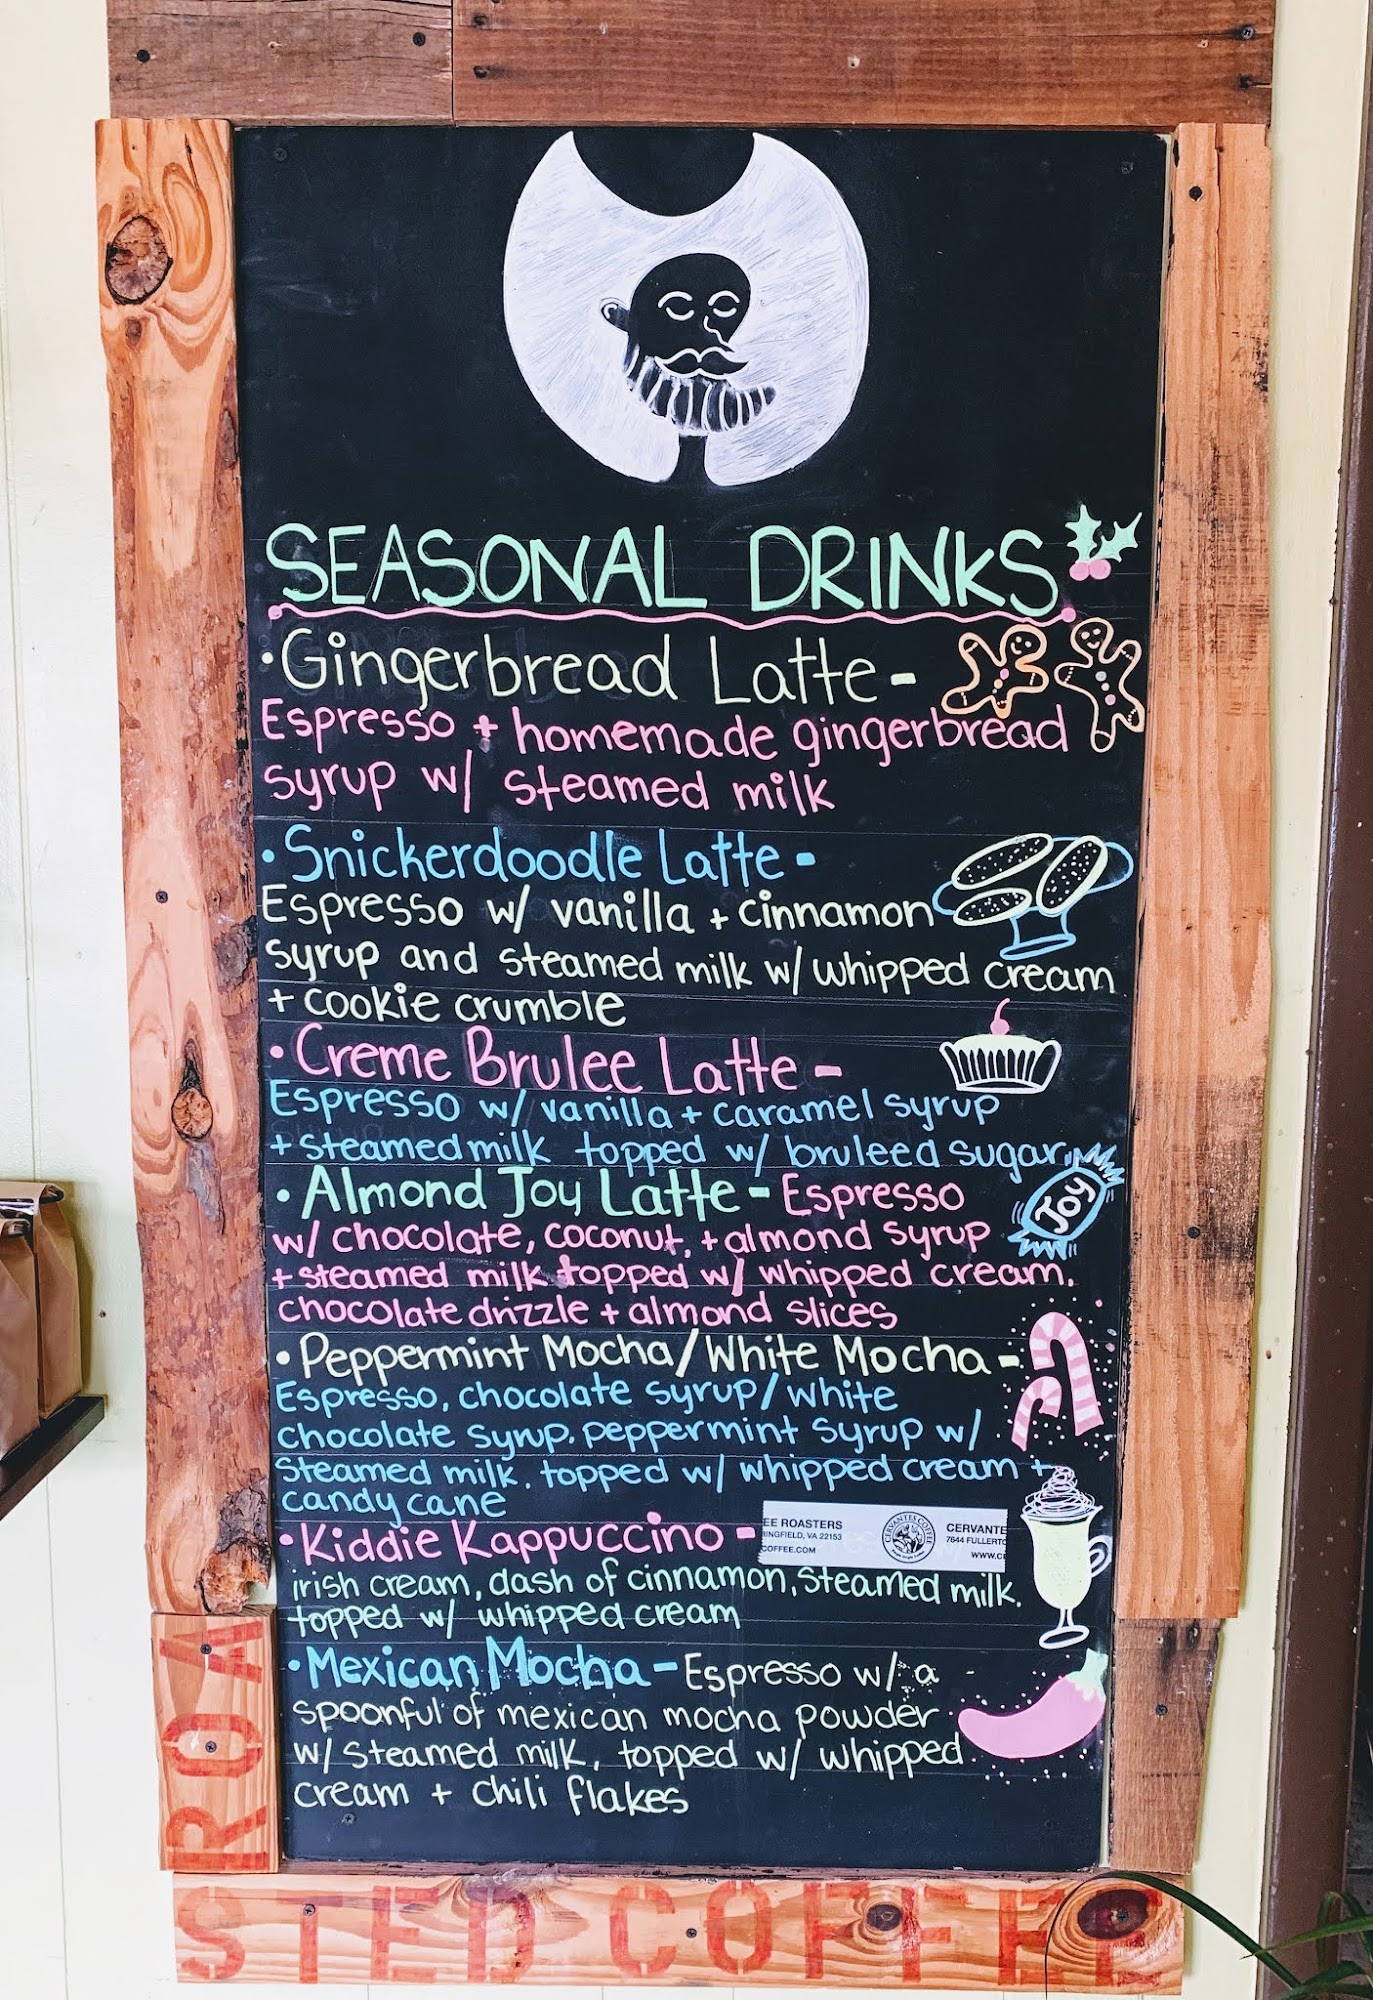 SEASONAL DRINKS
• Gingerbread Latte -
Espresso + homemade gingerbread
syrup w/ steamed milk
• Snickerdoodle Latte -
Espresso w/ vanilla + cinnamon
syrup and steamed milk w/ whipped cream
+ cookie crumble
• Creme Brulee Latte -
Espresso w/ vanilla + caramel syrup
+ steamed milk topped w/ bruleed sugar
• Almond Joy Latte - Espresso
w/ chocolate, coconut, + almond syrup
+ steamed milk topped w/ whipped cream,
chocolate drizzle + almond slices
JOY
• Peppermint Mocha/White Mocha -
Espresso, chocolate syrup/white
chocolate syrup, peppermint syrup w/
steamed milk, topped w/ whipped cream +
candy cane
• Kiddie Kappuccino -
EE ROASTERS
RINGFIELD, VA 22153
COFFEE.COM
CERVANTES COFFEE
CERVANTE
7644 FULLERTO
WWW.C
irish cream, dash of cinnamon, steamed milk,
topped w/ whipped cream
• Mexican Mocha - Espresso w/ a
spoonful of mexican mocha powder
w/ steamed milk, topped w/ whipped
cream + chili flakes
ROA
STED COFFEE